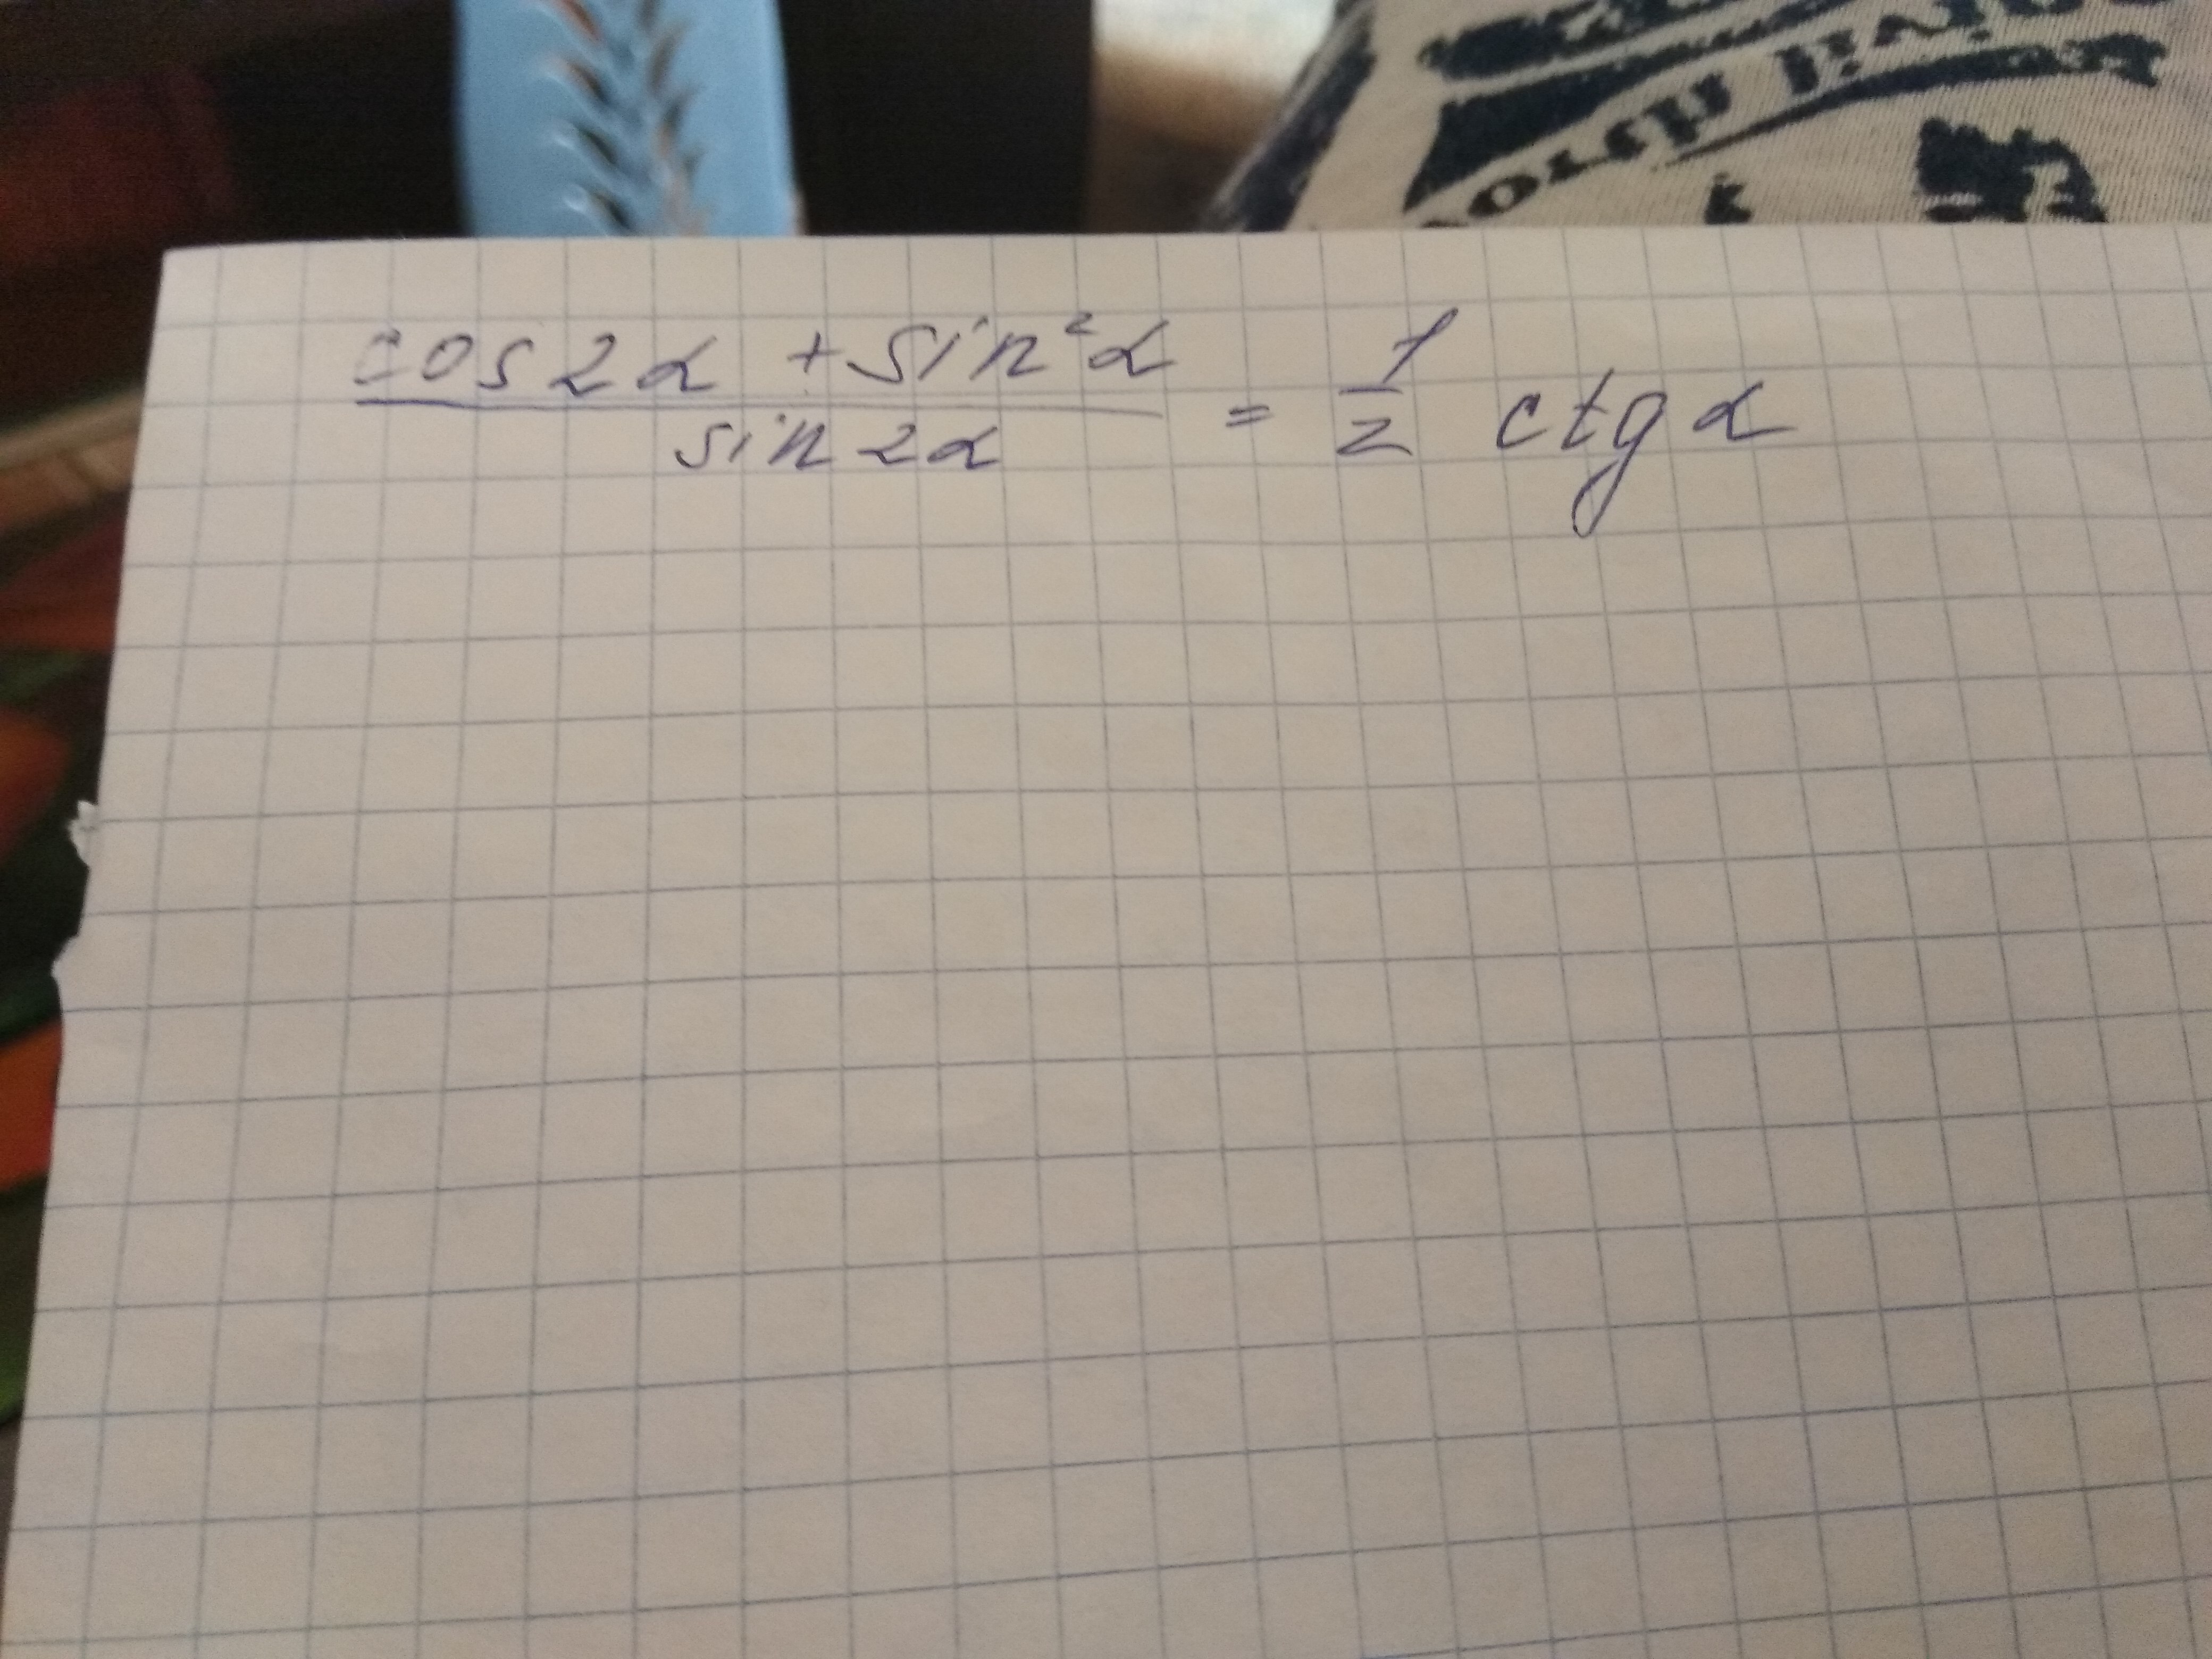 cos2α + sin²α / sin2α = 1/2 ctgα